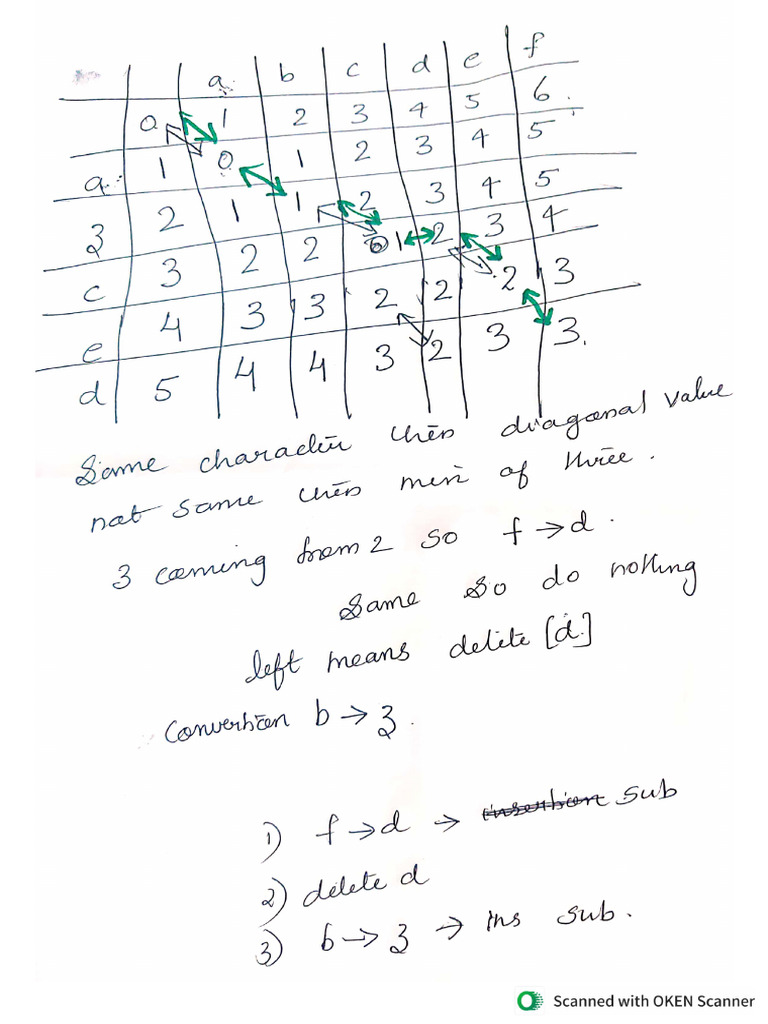 a b c d e f
0 1 2 3 4 5 6
a 1 0 1 2 3 4 5
3 2 1 1 2 3 4 5
c 3 2 2 1 2 3 4
e 4 3 3 2 2 2 3
d 5 4 4 3 2 3 3
Same character then diagonal value
not same then min of three.
3 coming from 2 so f → d.
Same so do nothing
left means delete [d]
Convertion b → 3.
1) f → d → insertion sub
2) delete d
3) b → 3 → ins sub.
Scanned with OKEN Scanner